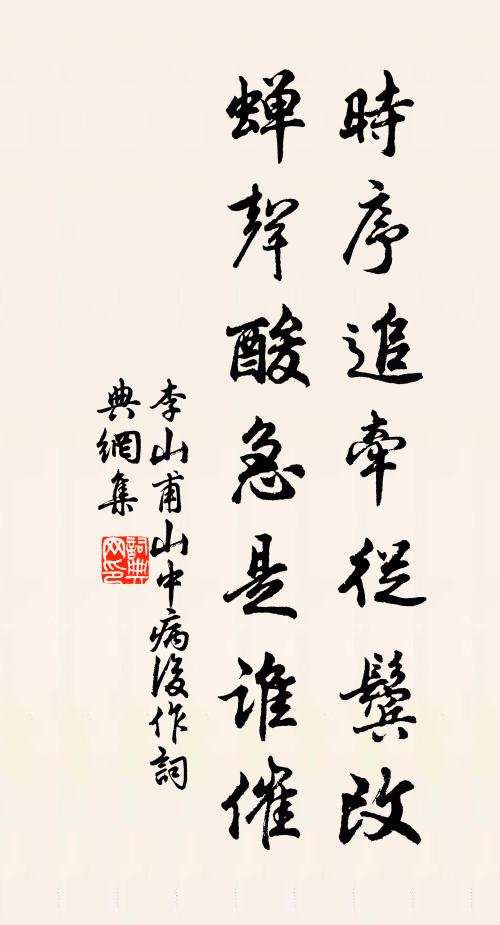 時序追牽從鬢改
蟬聲酸急是誰催
李山甫山中病後作詞
典網集
詞典網印